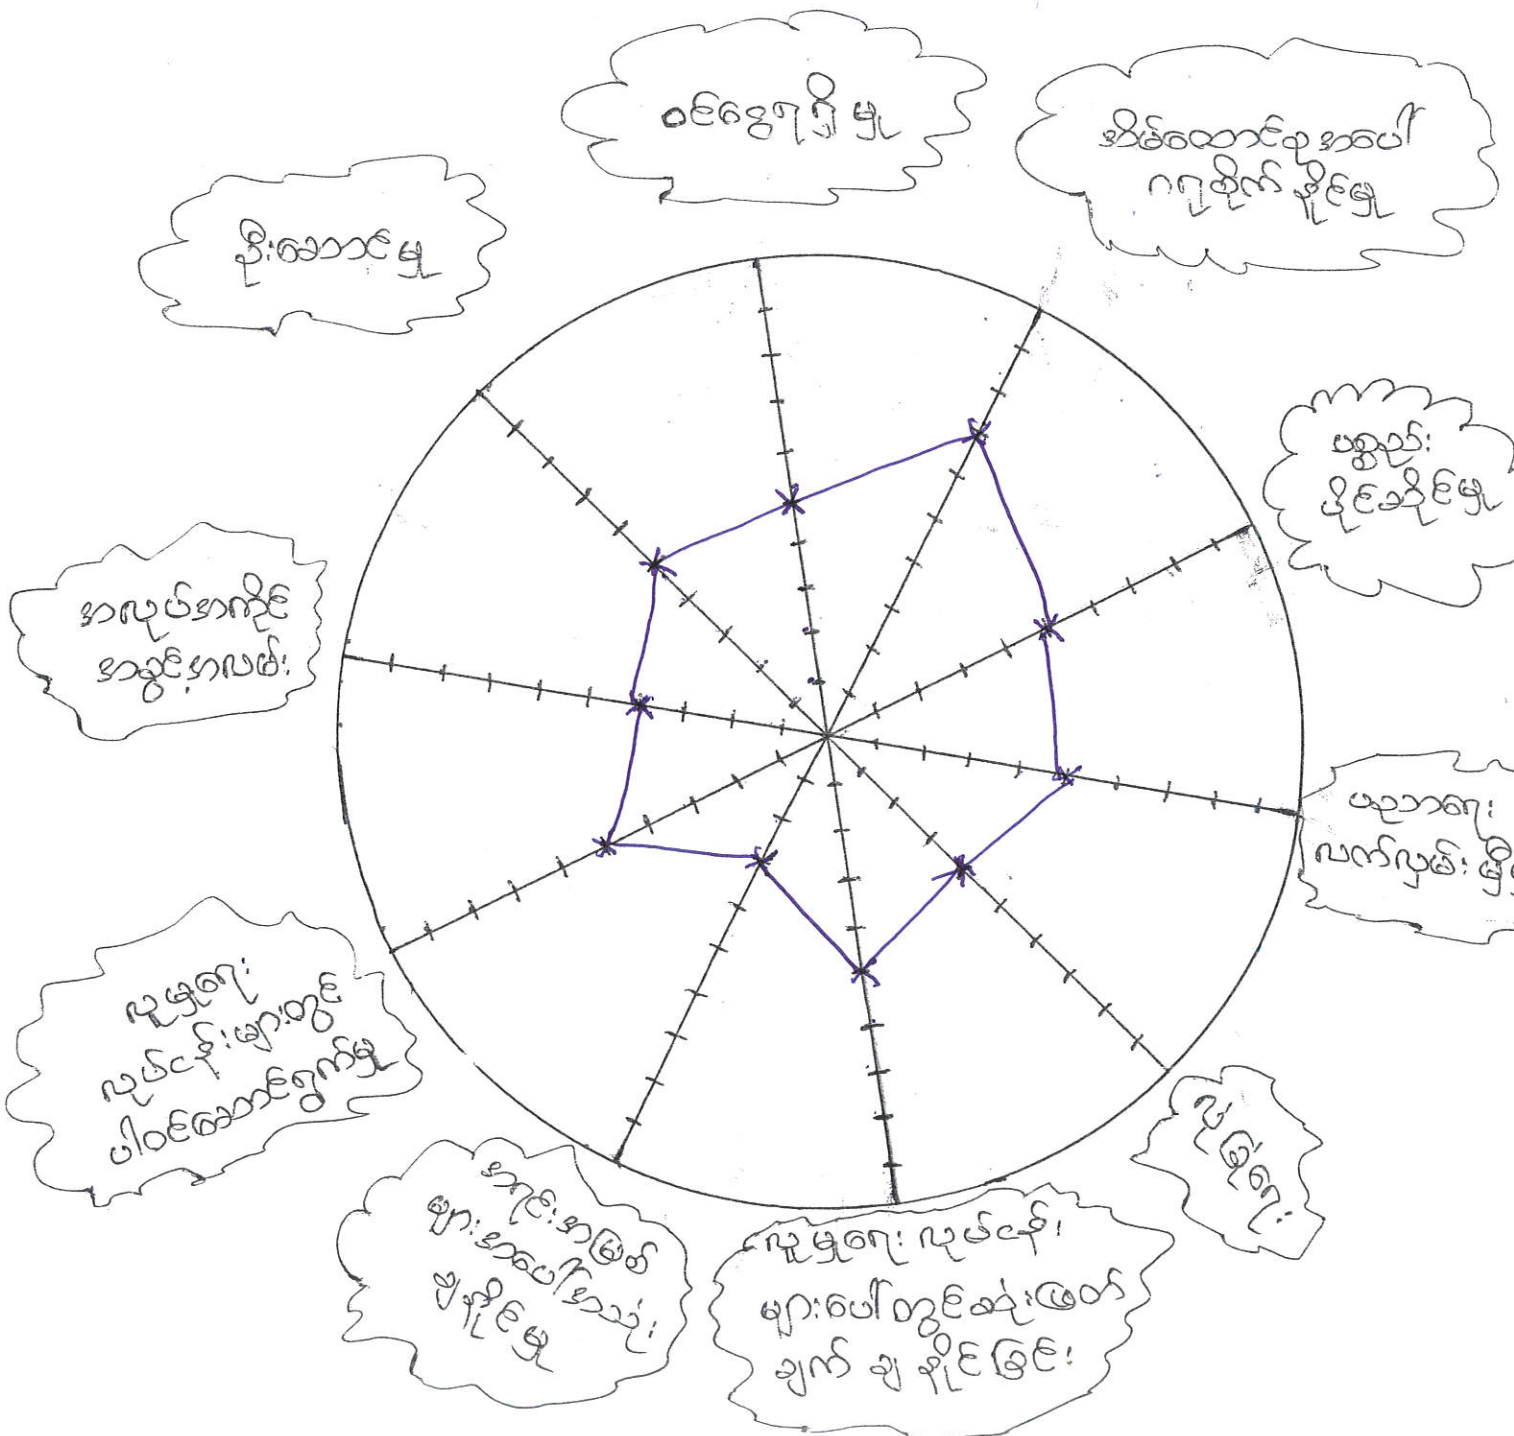 ဝင်ငွေရရှိမှု
အိမ်ထောင်စုအပေါ်
ဂရုစိုက်နိုင်မှု
ပစ္စည်း
ပိုင်ဆိုင်မှု
ပညာရေး
လက်လှမ်းမှီ
လုံခြုံရေး
လူမှုရေးလုပ်ငန်း
များပေါ်တွင်ဆုံးဖြတ်
ချက် ချနိုင်ခြင်း
အရင်းအမြစ်
များအပေါ်အသုံး
ချနိုင်မှု
လူမှုရေး
လုပ်ငန်းများတွင်
ပါဝင်ဆောင်ရွက်မှု
အလုပ်အကိုင်
အခွင့်အလမ်း
ဦးဆောင်မှု